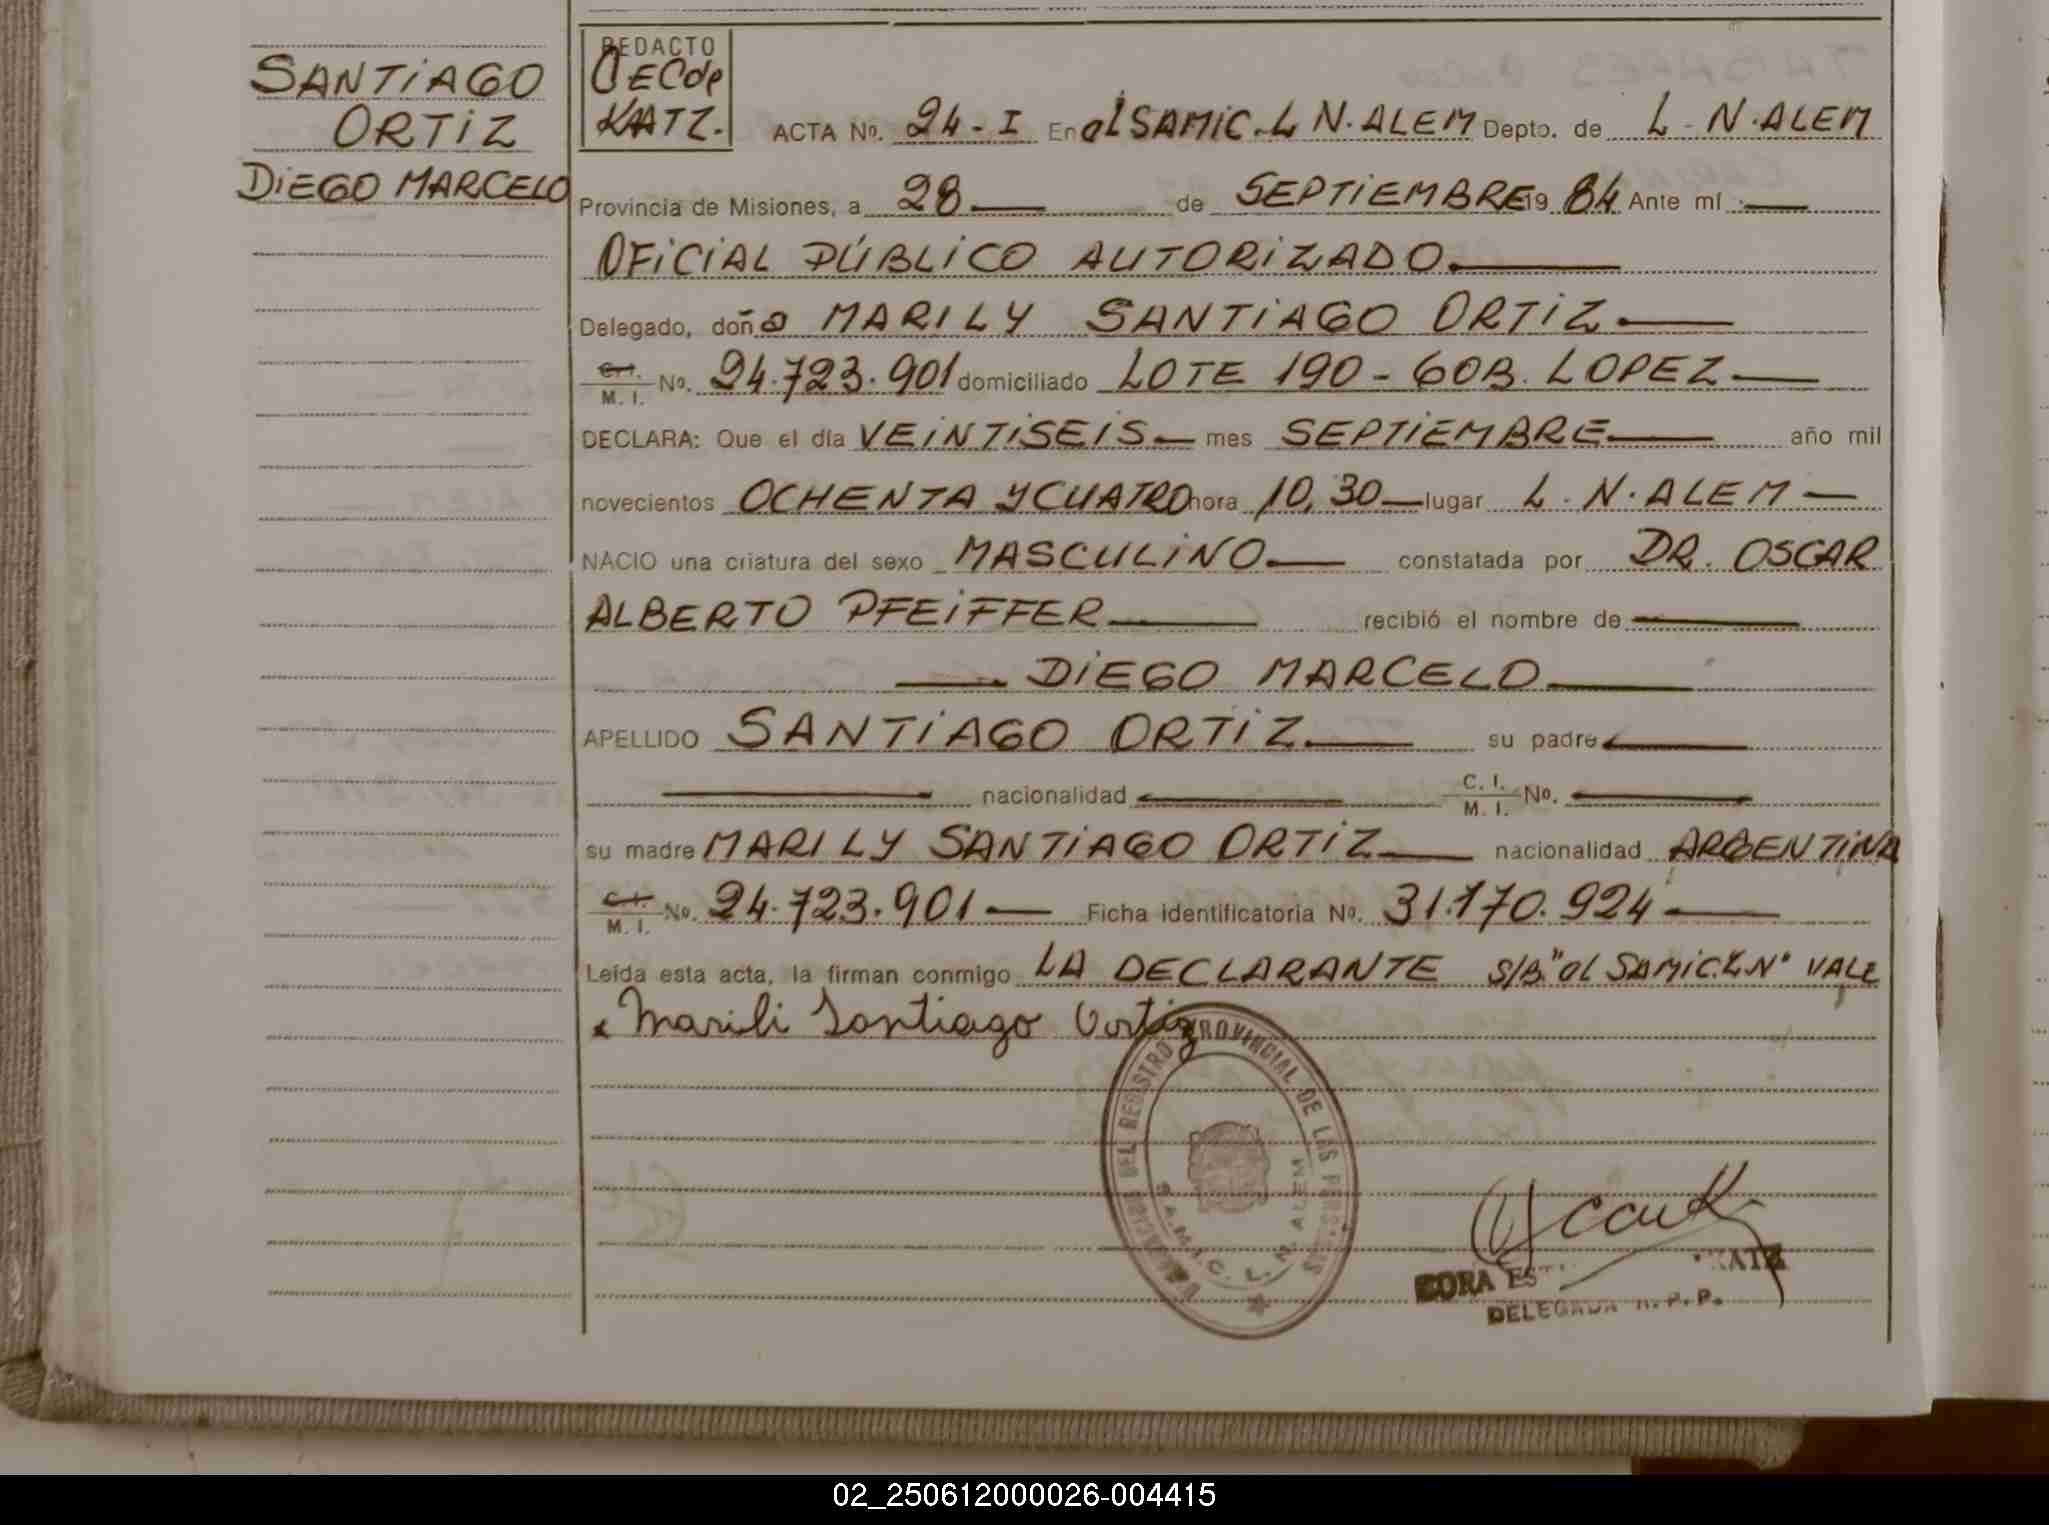 SANTIAGO
ORTIZ
DIEGO MARCELO
REDACTO
CECdeP
KATZ.
ACTA No. 24-I En el SAMIC. L N. ALEM Depto. de L. N. ALEM
Provincia de Misiones, a 28 de SEPTIEMBRE 19 84 Ante mí
OFICIAL PÚBLICO AUTORIZADO.
Delegado, doña MARILY SANTIAGO ORTIZ
C.I. M. I. No. 24.723.901 domiciliado LOTE 190 - GOB. LOPEZ
DECLARA: Que el día VEINTISEIS mes SEPTIEMBRE año mil
novecientos OCHENTA Y CUATRO hora 10,30 lugar L. N. ALEM
NACIO una criatura del sexo MASCULINO constatada por DR. OSCAR
ALBERTO PFEIFFER recibió el nombre de
DIEGO MARCELO
APELLIDO SANTIAGO ORTIZ su padre
nacionalidad C. I. M. I. No.
su madre MARILY SANTIAGO ORTIZ nacionalidad ARGENTINA
C.I. M. I. No. 24.723.901 Ficha identificatoria No. 31.170.924
Leída esta acta, la firman conmigo LA DECLARANTE S/B. "el SAMIC. L N" VALE
Marili Santiago Ortiz
DEL REGISTRO PROVINCIAL DE LAS PERSONAS
S.A.M.I.C. L. N. ALEM
CORA KATZ
DELEGADA R. P. P.
02_250612000026-004415